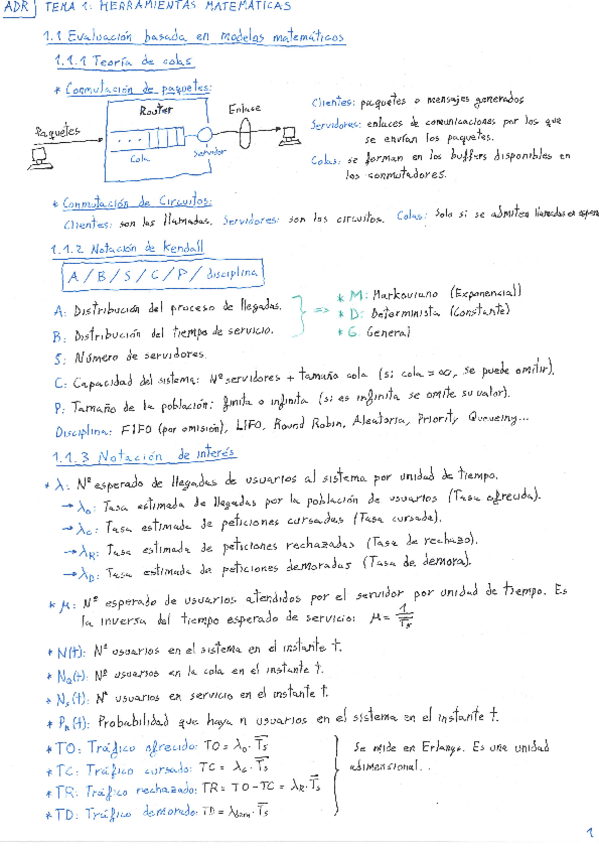 ADR TEMA 1: HERRAMIENTAS MATEMÁTICAS
1.1 Evaluación basada en modelos matemáticos
1.1.1 Teoría de colas
* Conmutación de paquetes:
Router
Enlace
Paquetes
Cola
Servidor
Clientes: paquetes o mensajes generados
Servidores: enlaces de comunicaciones por los que
se envían los paquetes.
Colas: se forman en los buffers disponibles en
los conmutadores.
* Conmutación de Circuitos:
Clientes: son las llamadas. Servidores: son los circuitos. Colas: Solo si se admiten llamadas en espera
1.1.2 Notación de Kendall
A / B / S / C / P / disciplina
A: Distribución del proceso de llegadas.
B: Distribución del tiempo de servicio.
=> * M: Markoviano (Exponencial)
* D: Determinista (Constante)
* G: General
S: Número de servidores.
C: Capacidad del sistema: Nº servidores + tamaño cola (si cola = ∞, se puede omitir).
P: Tamaño de la población: finita o infinita (si es infinita se omite su valor).
Disciplina: FIFO (por omisión), LIFO, Round Robin, Aleatoria, Priority Queueing...
1.1.3 Notación de interés
* λ: Nº esperado de llegadas de usuarios al sistema por unidad de tiempo.
→ λo: Tasa estimada de llegadas por la población de usuarios (Tasa ofrecida).
→ λc: Tasa estimada de peticiones cursadas (Tasa cursada).
→ λR: Tasa estimada de peticiones rechazadas (Tasa de rechazo).
→ λD: Tasa estimada de peticiones demoradas (Tasa de demora).
* μ: Nº esperado de usuarios atendidos por el servidor por unidad de tiempo. Es
la inversa del tiempo esperado de servicio: μ = 1/Ts
* N(t): Nº usuarios en el sistema en el instante t.
* NQ(t): Nº usuarios en la cola en el instante t.
* Ns(t): Nº usuarios en servicio en el instante t.
* Pn(t): Probabilidad que haya n usuarios en el sistema en el instante t.
* TO: Tráfico ofrecido: TO = λo · Ts
* TC: Tráfico cursado: TC = λc · Ts
* TR: Tráfico rechazado: TR = TO - TC = λR · Ts
* TD: Tráfico demorado: TD = λdem · Ts
Se mide en Erlangs. Es una unidad
adimensional.
1